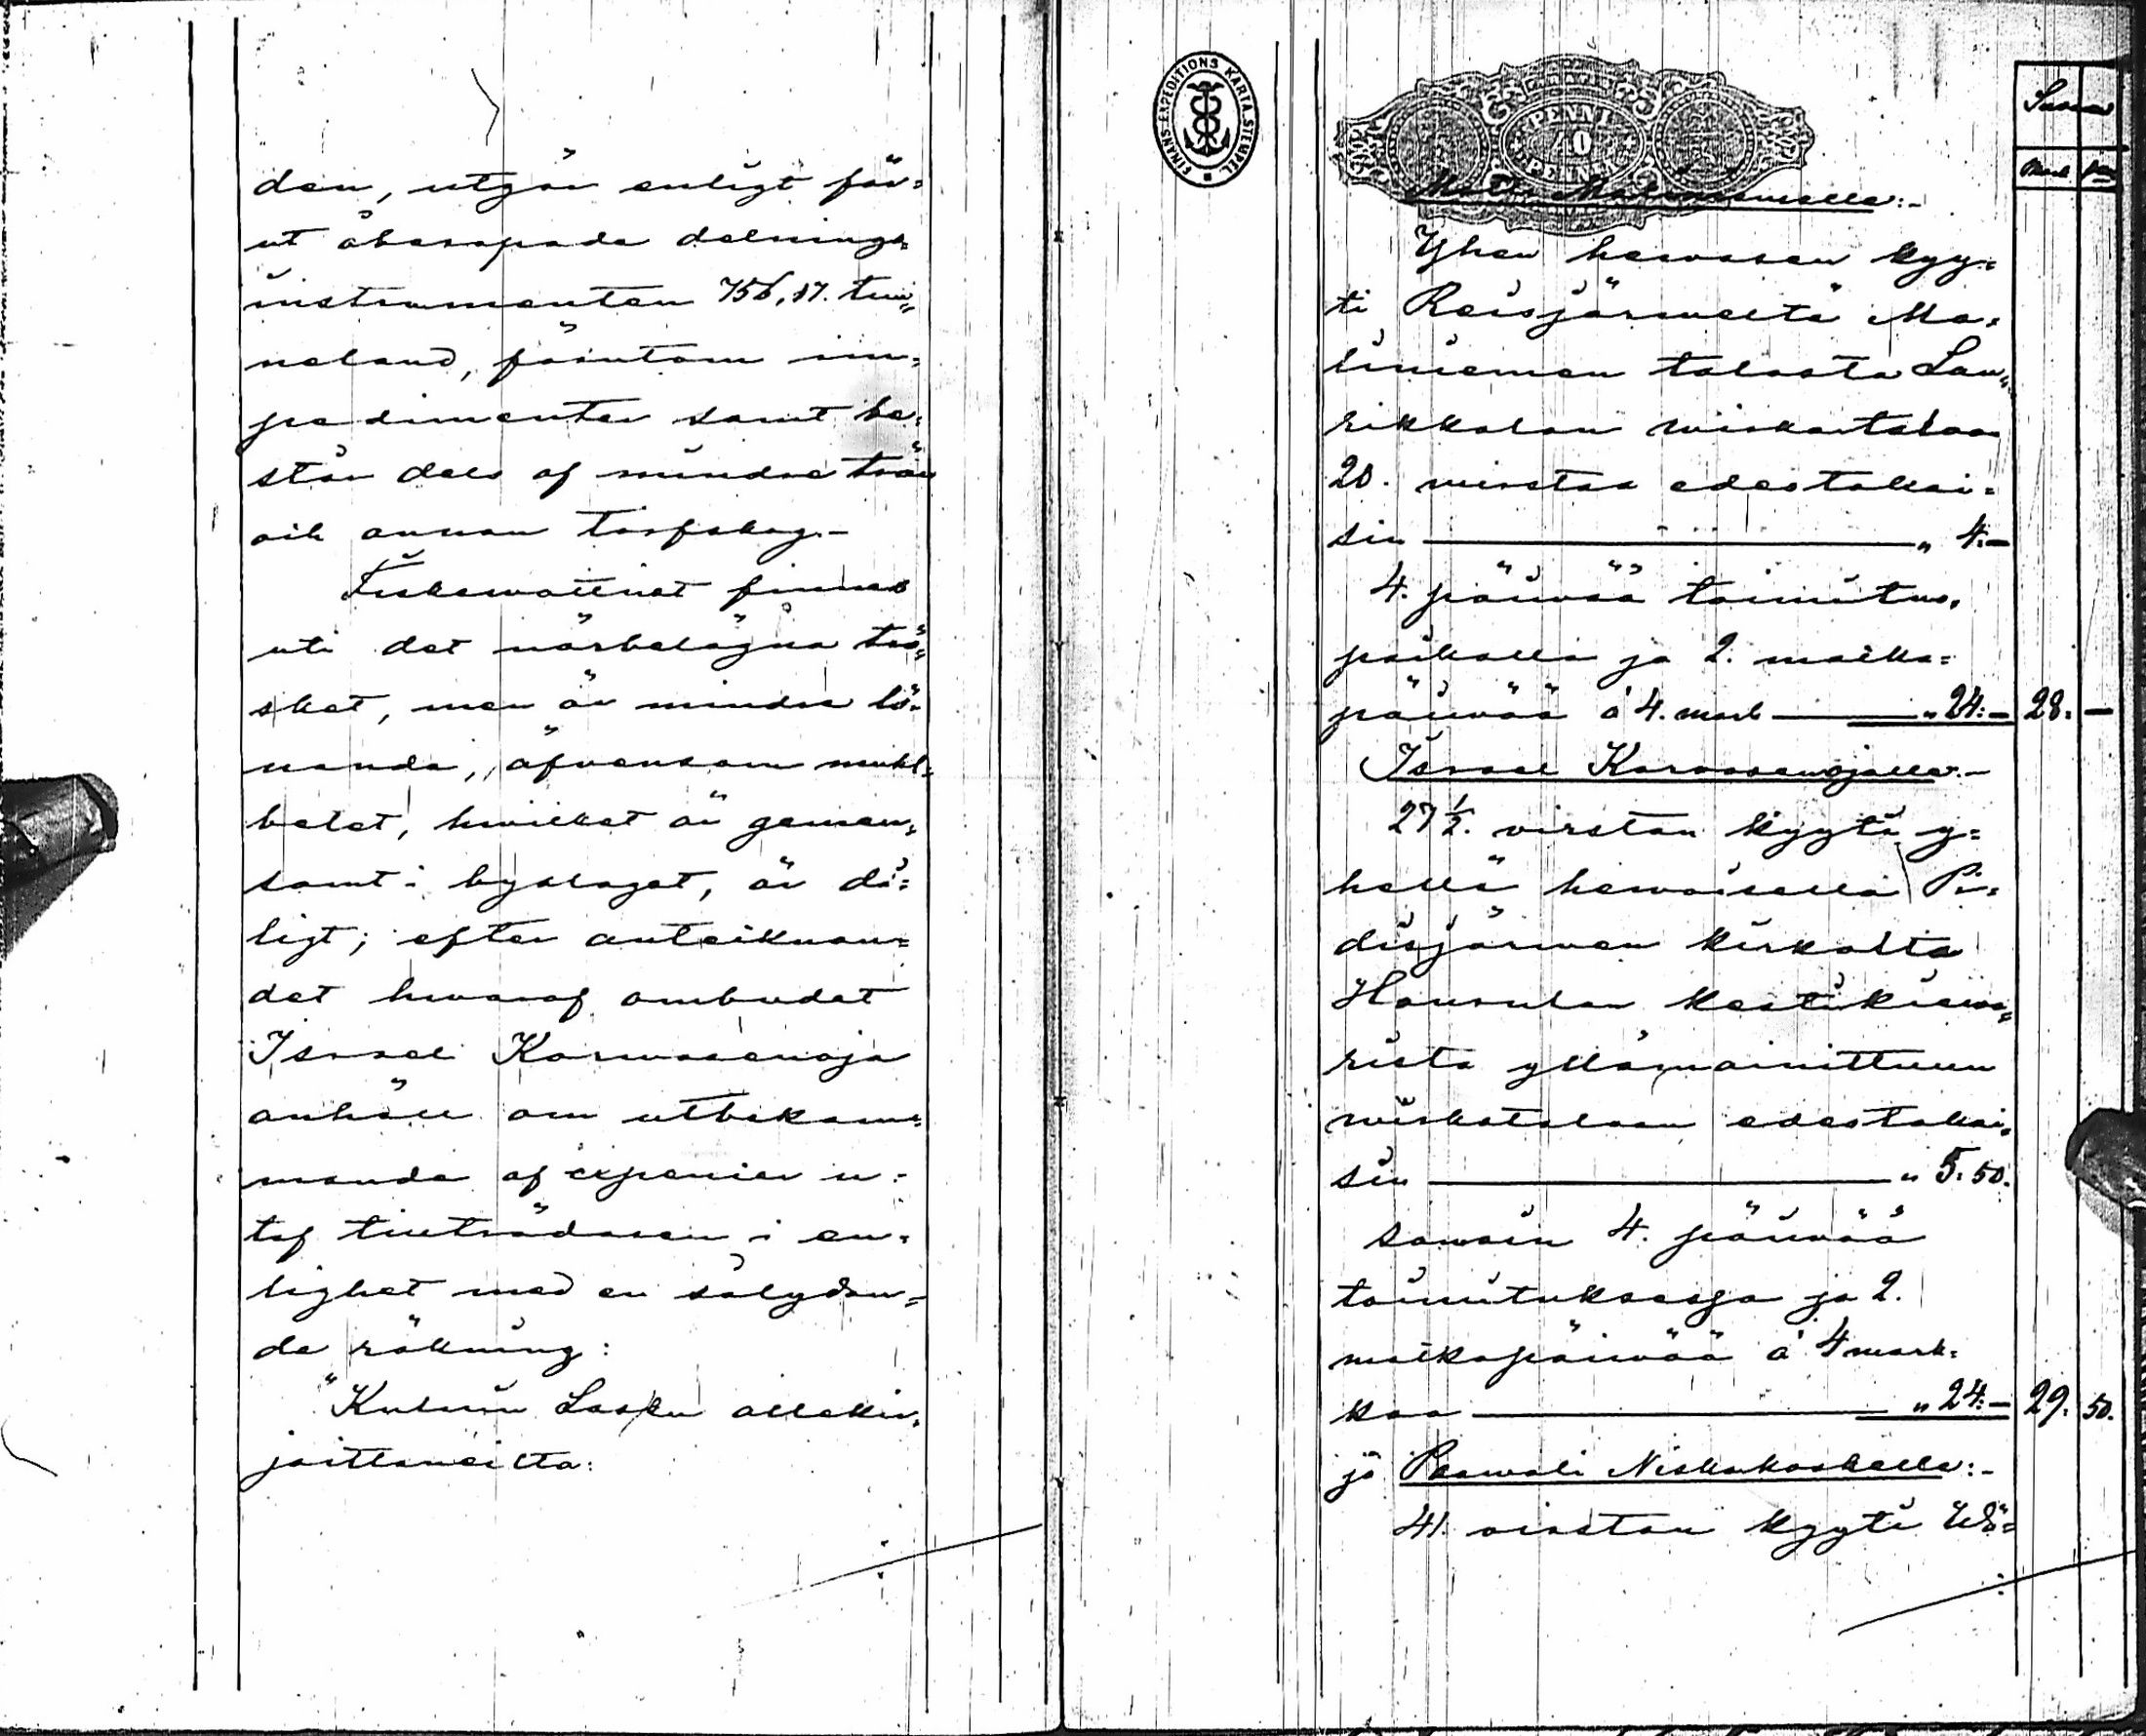 den, utgör enligt för=
ut åberopade delnings=
instrumenten 756,87. tun=
neland, förutom im=
pedimenter samt be=
står dels af mindre trän
och annan torfskog.-
Fiskewattnet finnes
uti det närbelägna trä=
sket, men är mindre lö=
nande, äfvensom muhl=
betet, hwilket är gemen=
samt i byalaget, är då=
ligt; efter anteiknan=
det hwaraf ombudet
Israel Karwasenoja
anhöll om utbekom=
mande af expenser u=
taf tillträdaren i en=
lighet med en sålydan=
de räkning:
"Kuluin Lasku allekir=
joittaneilta:
FINANS-EXPEDITIONS KARTA.STEMPEL.
PENNI
40
PEINN
Summa
Mark pni
Matti :-
Yhen hewosen kyy=
ti Reisjärweltä Ma=
liniemen talosta Lau=
rikkalan wirkataloon
20. wirstaa edestakai=
sin " 4.-
4. päiwää toimitus,
paikalla ja 2. matka=
päiwää à 4. mark " 24:- 28. -
Israel Karwasenojalle:-
27 1/2. virstan kyyti y=
hellä hewoisella Pi=
disjärwen kirkolta
Hausulan kestikiewa=
rista yllämainittuun
wirkataloon edestakai=
sin " 5.50.
samoin 4. päiwää
toimituksessa ja 2.
matkapäiwää à 4 mark=
kaa " 24:- 29. 50.
ja Paawali Niskakoskelle:-
41. virstan kyyti